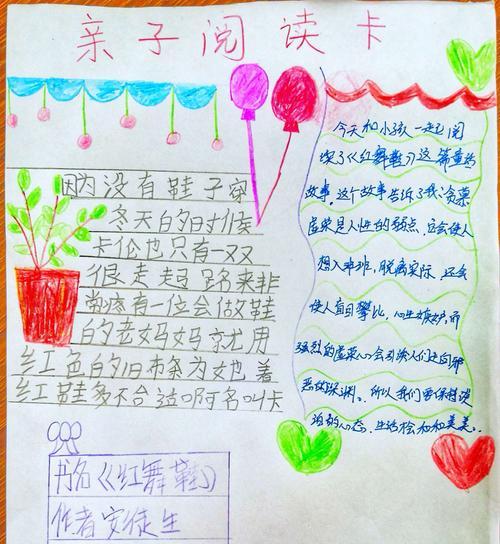 亲子阅读卡
因为没有鞋子穿
冬天的时候
卡伦也只有一双
很走起路来非
常疼有一位会做鞋
的老妈妈就用
红色的旧布条为她着
红鞋多不合适啊名叫卡
今天和小孩一起阅
读了《红舞鞋》这篇童话
故事,这个故事告诉了我:贪慕
虚荣是人性的弱点,它会使人
想入非非,脱离实际,还会
使人盲目攀比,心生嫉妒,而
强烈的虚荣心会引诱人们走向邪
恶的深渊。所以我们要保持淡
泊的心态,生活检和和美美。
书名《红舞鞋》
作者安徒生